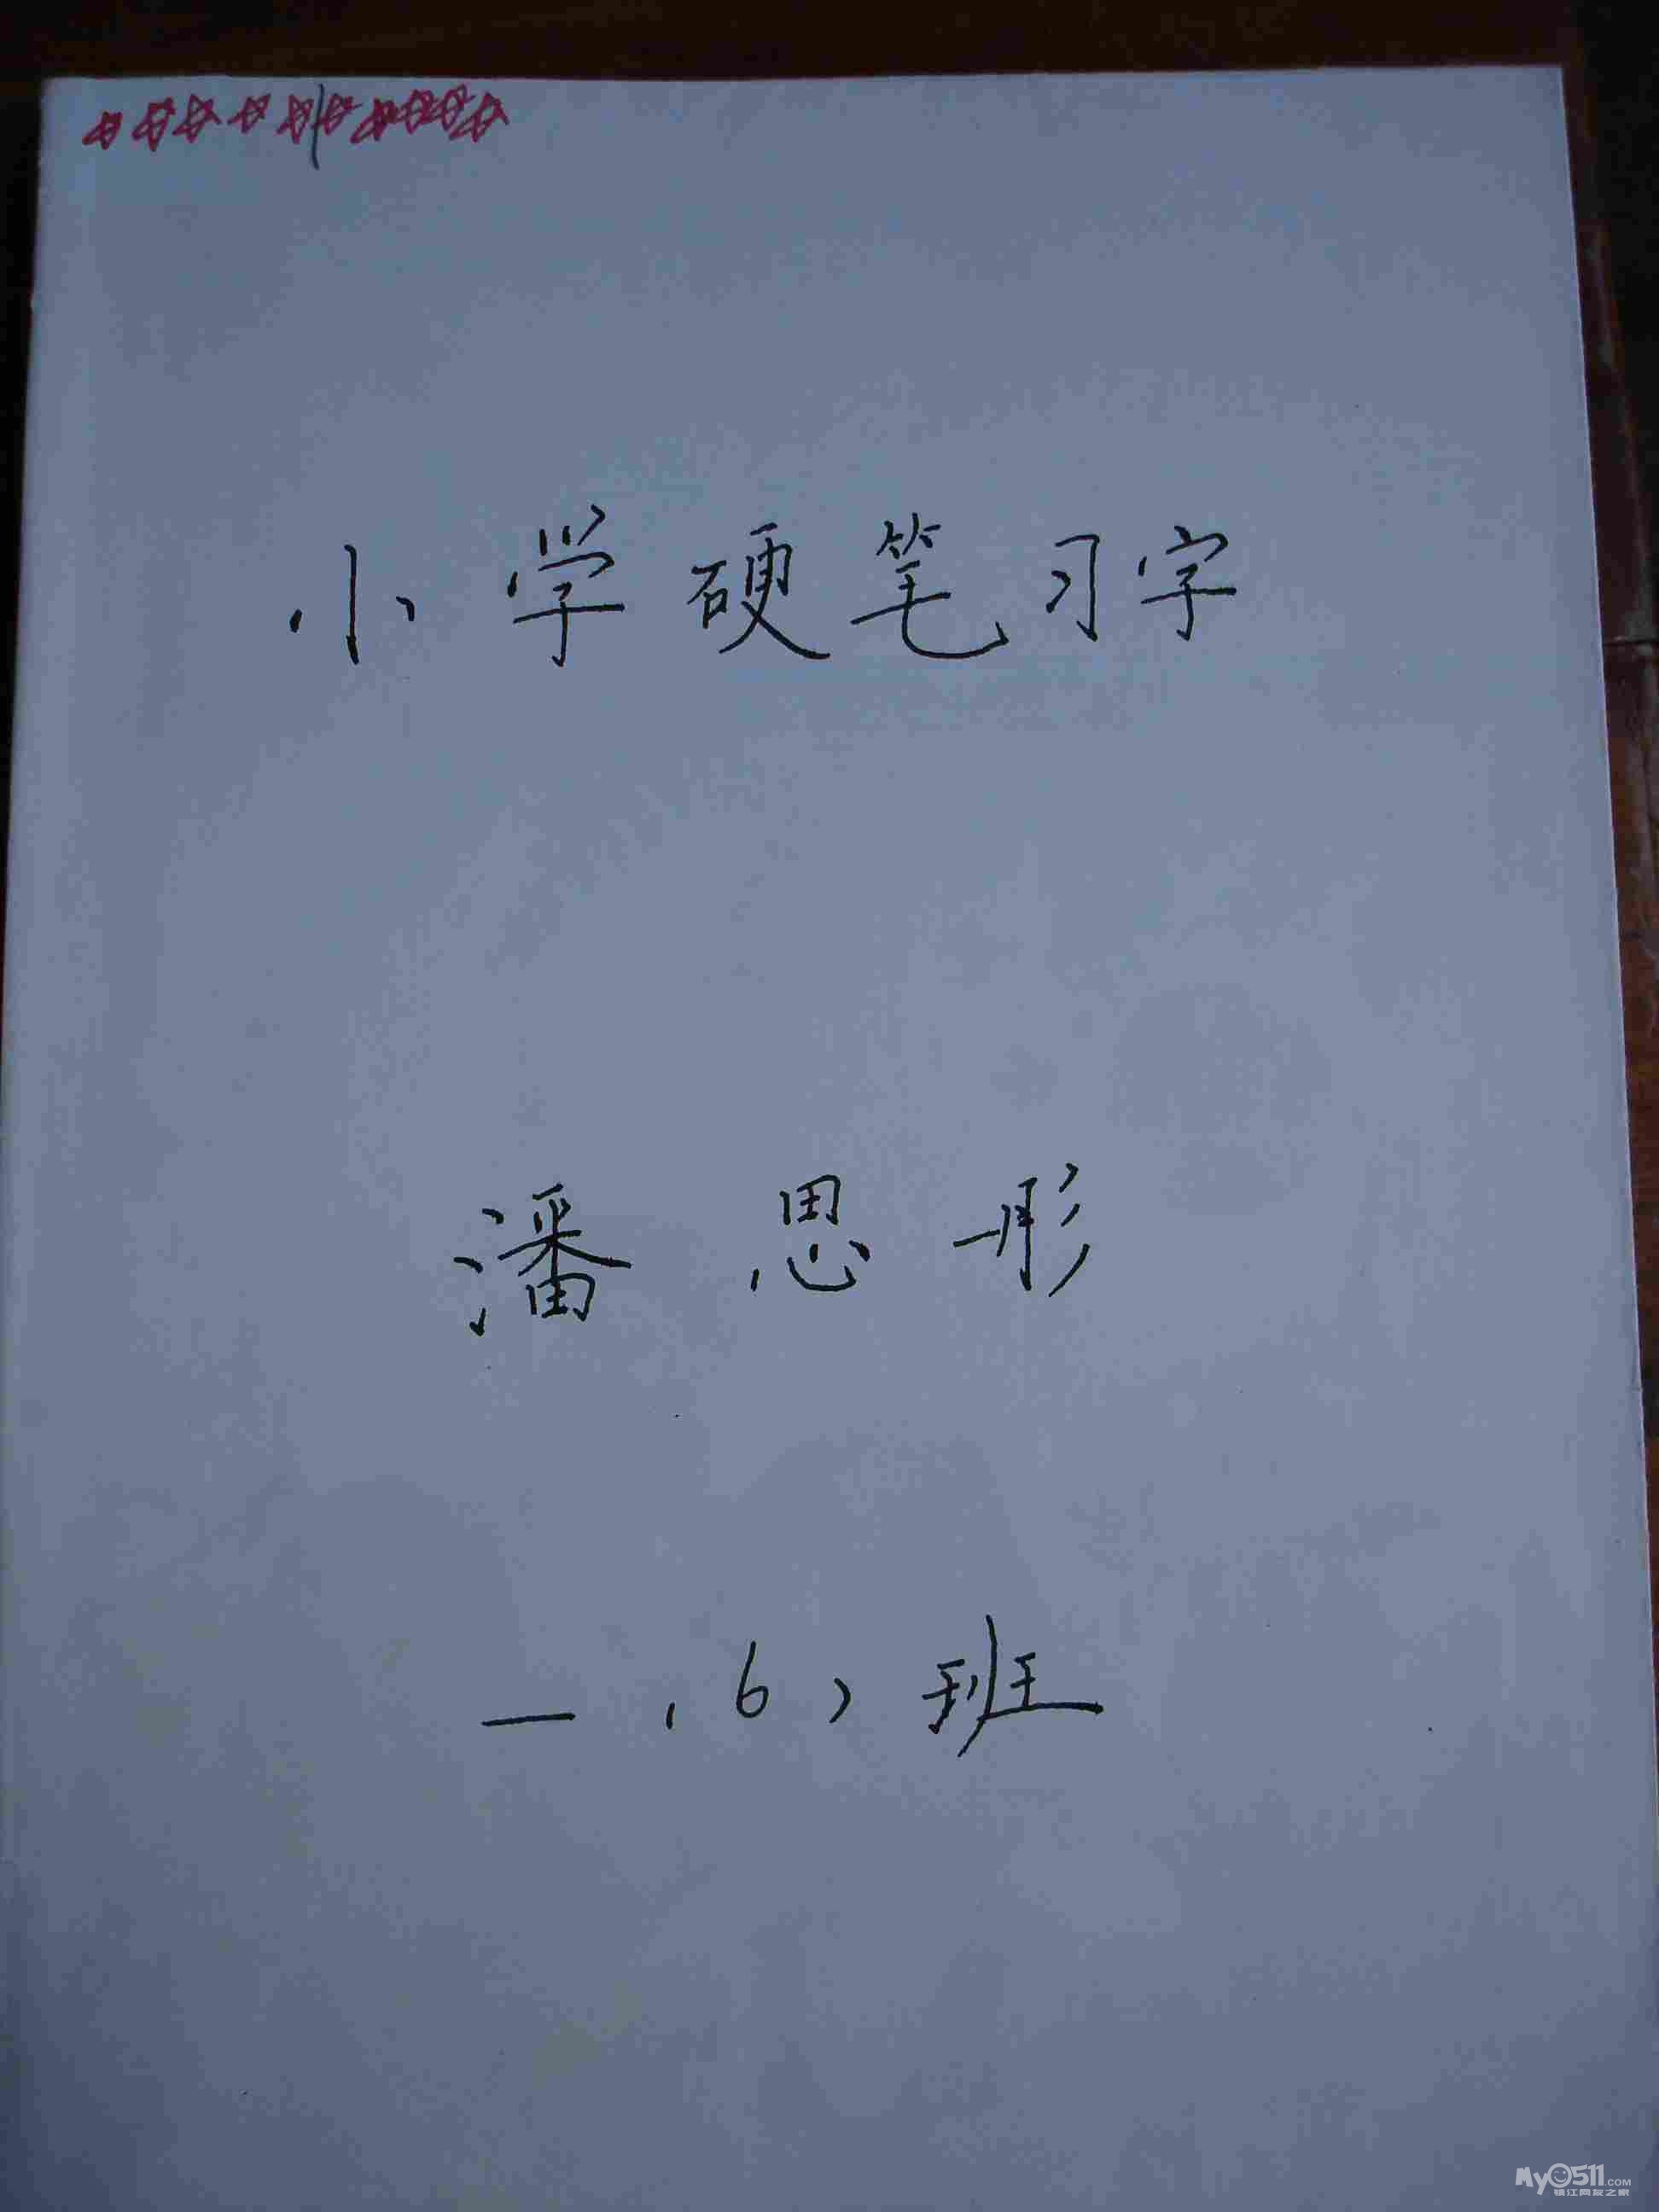 小学硬笔习字
潘思彤
一(6)班
My0511.COM
镇江网友之家